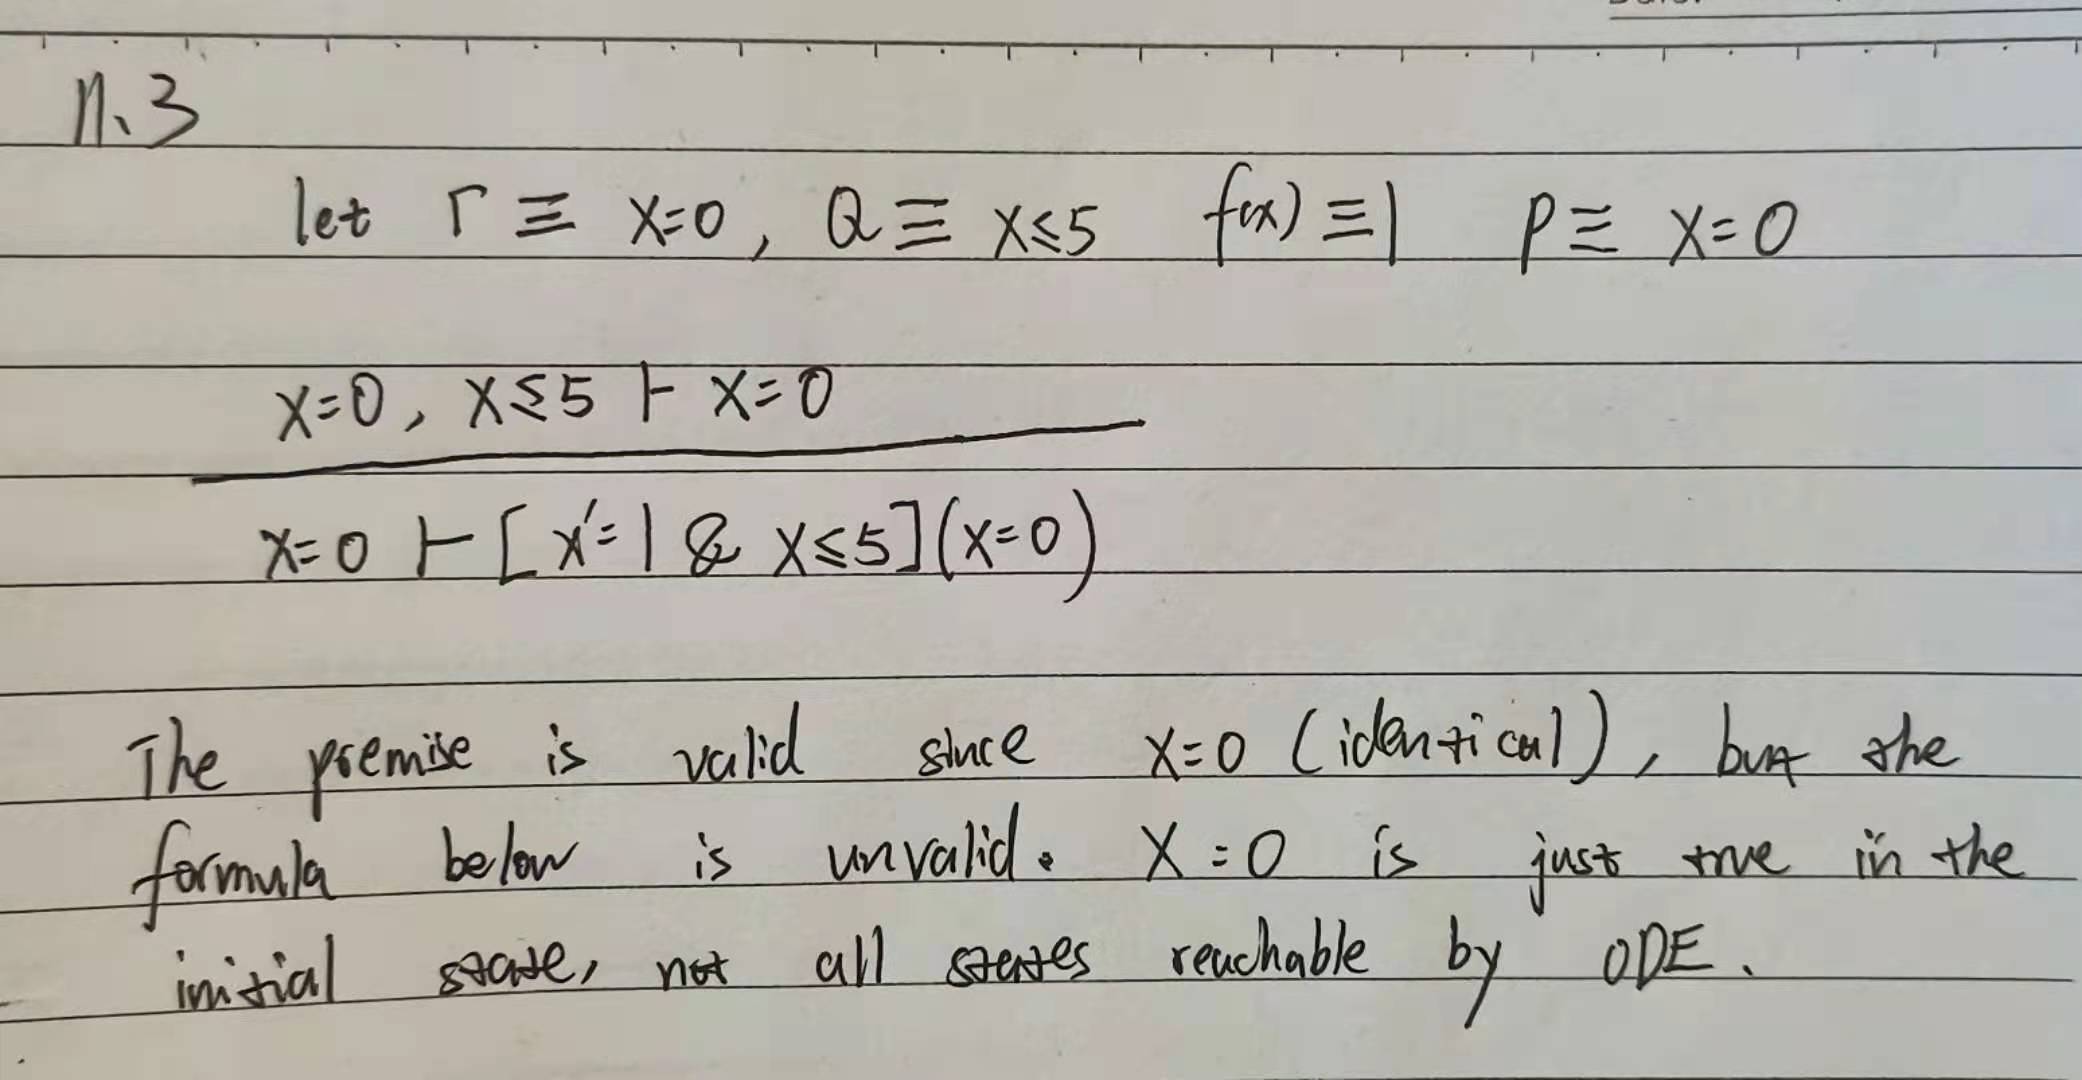 11.3
let Γ ≡ x=0, Q ≡ x≤5 f(x) ≡ 1 P ≡ x=0
x=0, x≤5 ⊢ x=0
x=0 ⊢ [x'=1 & x≤5](x=0)
The premise is valid since x=0 (identical), but the
formula below is unvalid. X=0 is just true in the
initial state, not all states reachable by ODE.